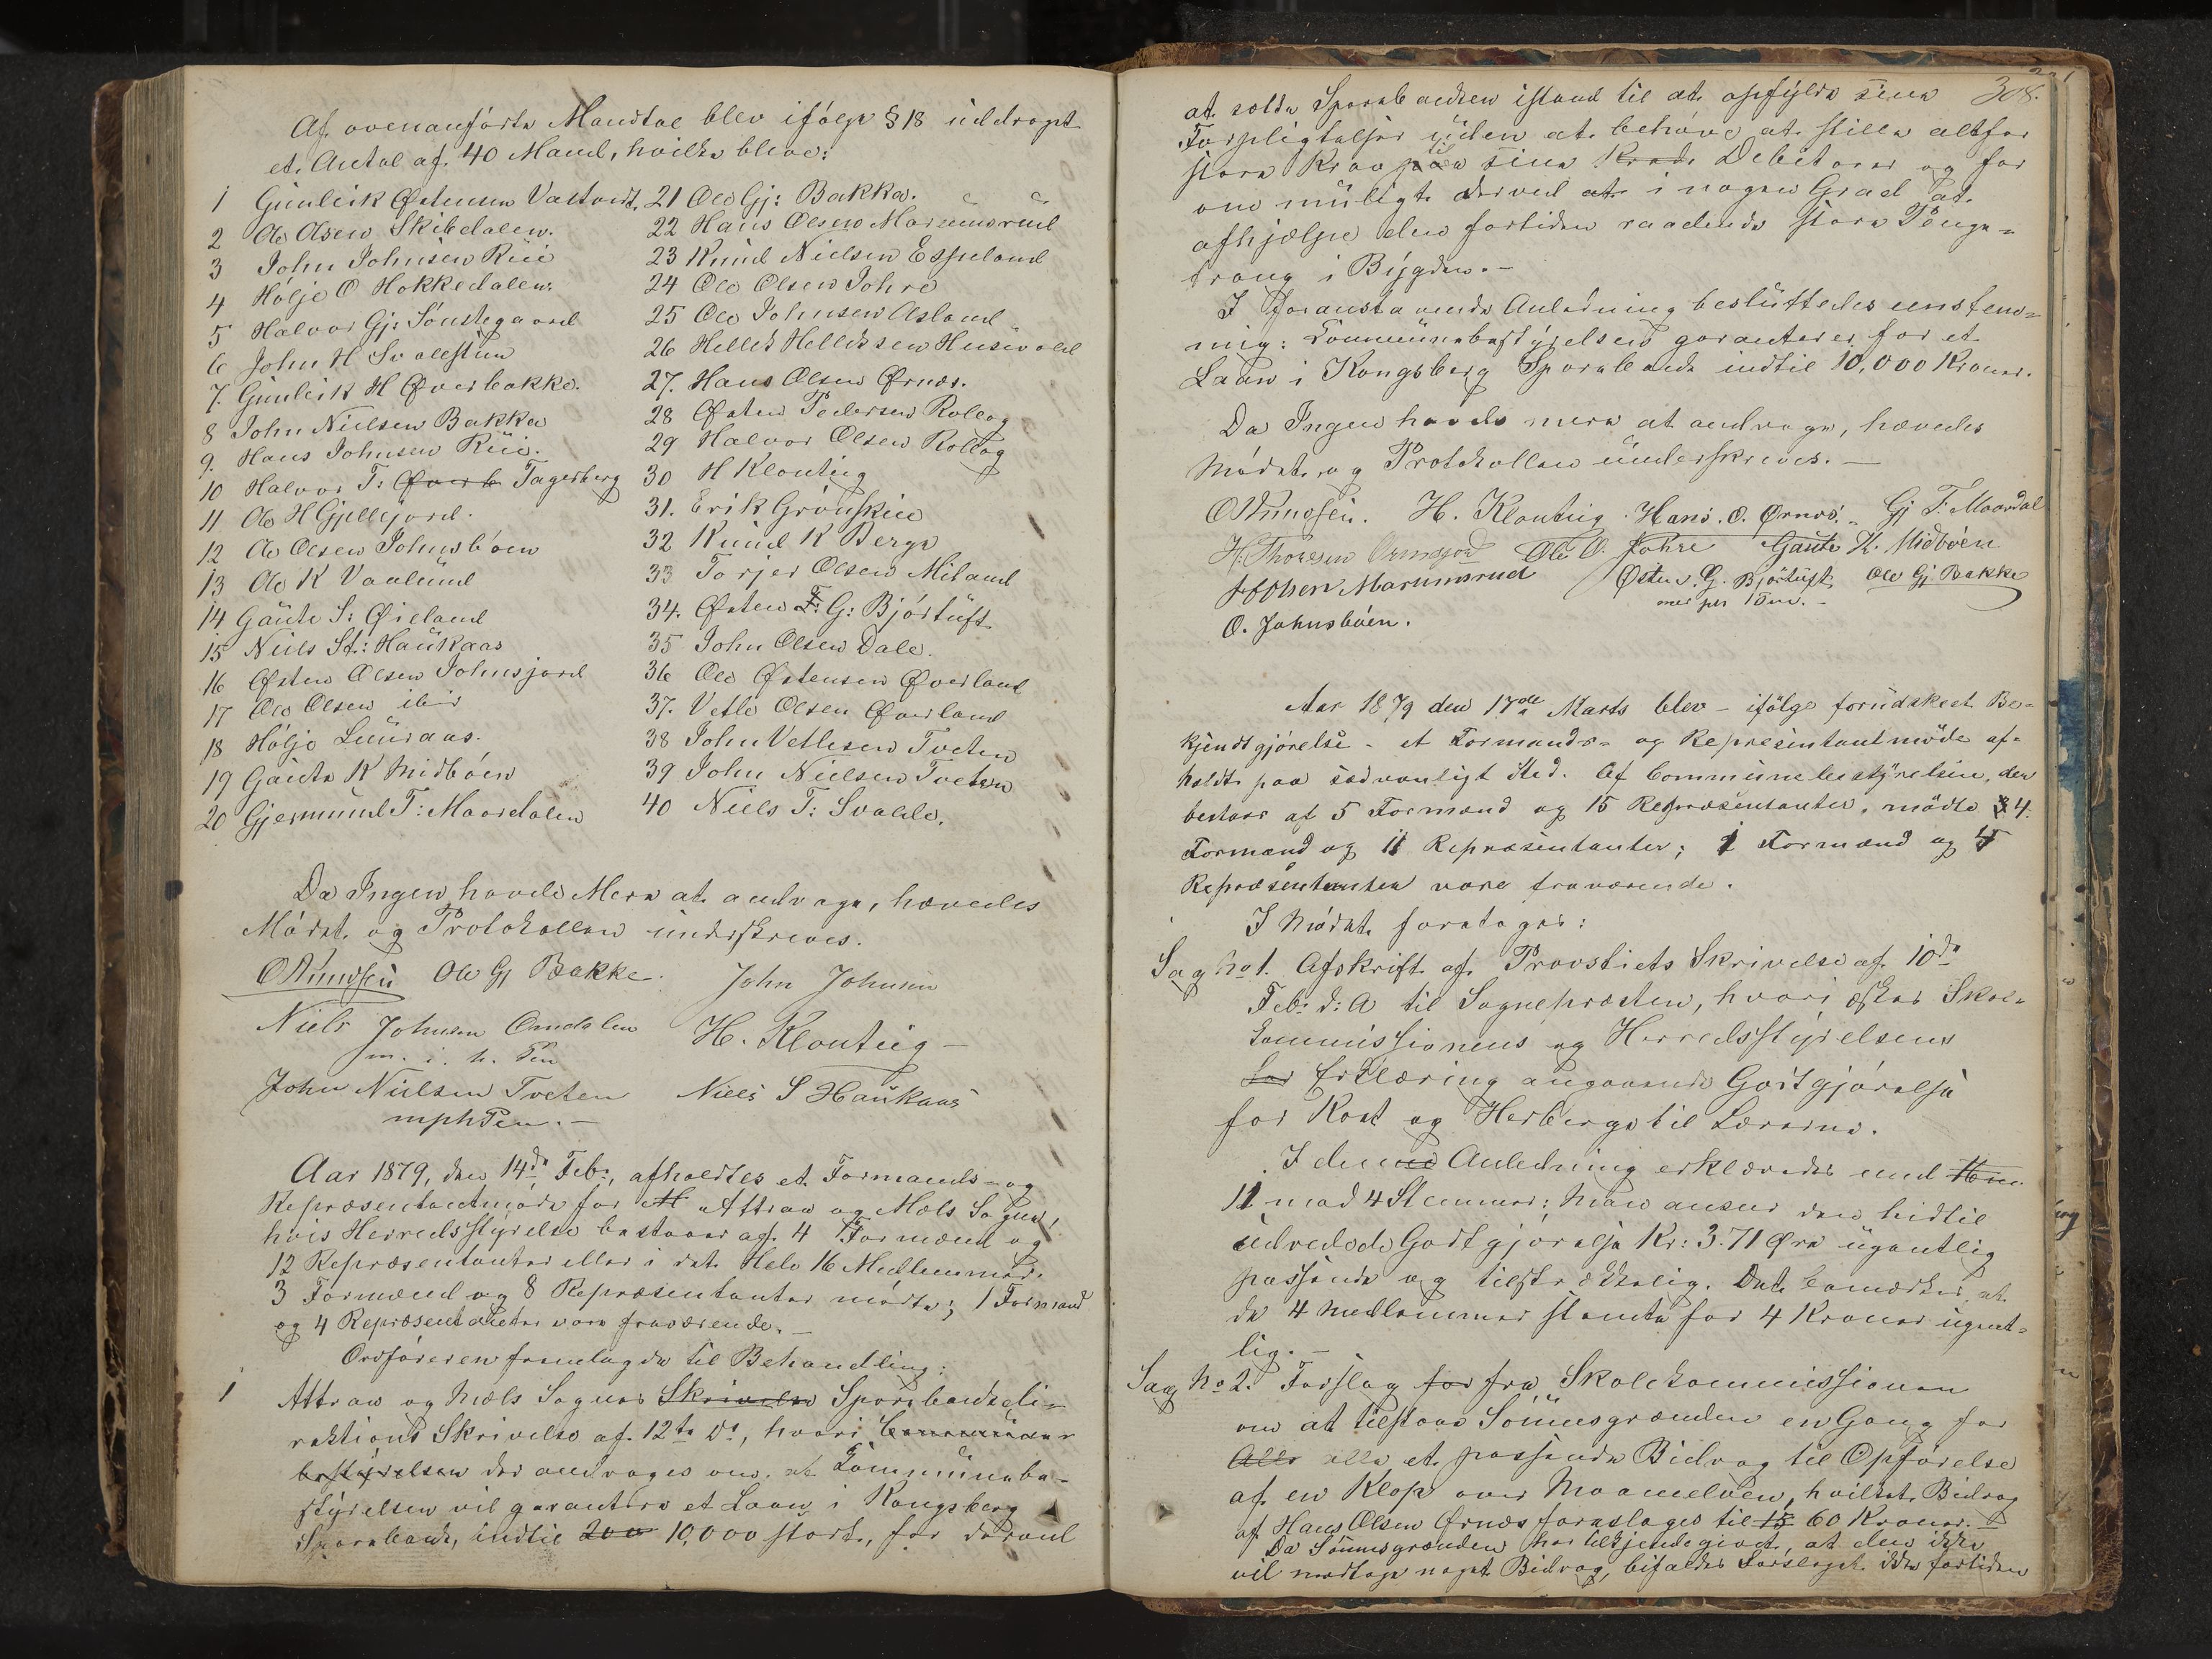 Af ovenanførte Mandtal blev ifølge § 18 uddraget
et Antal af 40 Mand, hvilke bleve:
1 Gunleik Østensen Vastveit.
2 Ole Olsen Skibdalen.
3 John Johnsen Rui
4 Hølje O Hokkedalen.
5 Halvor Gj: Sønstegaard
6 John H Svalestuen
7. Gunleik H Øverbakke.
8 John Nielsen Bakka
9. Hans Johnsen Rui.
10 Halvor T: Øverb Tagerberg
11. Ole H Gjellejord.
12 Ole Olsen Johnsbøen
13 Ole K Vaalund
14 Gaute S: Øieland
15 Niels St: Haukaas
16 Østen Olsen Johnsjord
17 Ole Olsen ibid
18 Hølje Luraas.
19 Gaute K Midbøen
20 Gjermund T: Maardalen
21 Ole Gj: Bakka.
22 Hans Olsen Marumsrud
23 Knud Nielsen Espeland
24 Ole Olsen Johre
25 Ole Johnsen Aasland
26 Hellek Helleksen Husevold
27. Hans Olsen Ørnæs.
28 Østen Pedersen Rollag
29 Halvor Olsen Rollag
30 H Klouteig
31. Erik Grønskei
32 Knud K Berge
33 Torjer Olsen Miland
34. Østen G: Bjørtuft
35 John Olsen Dale.
36 Ole Østensen Øverland
37. Vetle Olsen Øverland
38 John Vetlesen Tveten
39 John Nielsen Tveten
40 Niels T: Svadde.
Da Ingen havde Mere at andrage, hævedes
Mødet og Protokollen underskreves.
O Knudsen Ole Gj Bakke John Johnsen
Niels Johnsen Omdalen H. Klouteig -
m. i. h. Pen
John Nielsen Tveten Niels S Haukaas
mphPen. -
Aar 1879, den 14de Feb:, afholdtes et Formands- og
Repræsentantmøde for M Attraa og Mæls Sogne,
hvis Herredsstyrelse bestaaer af 4 Formænd og
12 Repræsentanter eller i det Hele 16 Medlemmer.
3 Formænd og 8 Repræsentanter mødte; 1 Formand
og 4 Repræsentanter vare fraværende. -
Ordføreren fremlagde til Behandling:
1 Attraa og Mæls Sognes Skrivelse Sparebankdi-
rektions Skrivelse af 12te Ds, hvori Commune-
bestyrelsen der andrages om at Kommunebe-
styrelsen vil garantere et Laan i Kongsberg
Sparebank, indtil 200 10,000 stort, for derved
308.
at sætte Sparebanken istand til at opfylde sine
Forpligtelser uden at behøve at stille altfor
store Krav paa til sine Kred. Debitorer og for
om muligt derved at i nogen Grad at
afhjælpe den fortiden raadende store Penge-
trang i Bygden. -
I foranstaaende Anledning besluttedes eenstem-
mig: Kommunebestyrelsen garanterer for et
Laan i Kongsberg Sparebank indtil 10,000 Kroner.
Da Ingen havde mere at andrage, hævedes
Mødet og Protokollen underskreves. -
O Knudsen. H. Klouteig. Hans. O. Ørnes. Gj T. Maardal
H. Thoresen Ormsjord Ole O. Johre Gaute K. Midbøen
H Olsen Marumsrud Østen. G. Bjørtuft Ole Gj. Bakke
med p Pen. -
O. Johnsbøen.
Aar 1879 den 17de Marts blev - ifølge forudskeet Be-
kjendtgjørelse - et Formands- og Repræsentantmøde af-
holdt paa sædvanligt Sted. Af Communebestyrelsen, der
bestaar af 5 Formænd og 15 Repræsentanter, mødte 4
Formænd og 11 Repræsentanter; 1 Formand og 4
Repræsentanter vare fraværende.
I Mødet foretoges:
Sag No 1. Afskrift af Provstiets Skrivelse af 10de
Feb: d: A til Sognepræsten, hvori æskes Skole-
kommissionens og Herredsstyrelsens
for Erklæring angaaende Godtgjørelse
for Kost og Herberge til Lærerne.
I denne Anledning erklæredes med
11 mod 4 Stemmer: Man anser den hidtil
udredede Godtgjørelse Kr: 3.71 Øre ugentlig
passende og tilstrækkelig. Det bemærkes, at
de 4 Medlemmer stemte for 4 Kroner ugent-
lig. -
Sag No 2. Forslag for fra Skolekommissionen
om at tilstaae Sønnesgrænden en Gang for
Alle alle et passende Bidrag til Opførelse
af en Klop over Maanelven, hvilket Bidrag
af Hans Olsen Ørnæs foresloges til 15 60 Kroner. -
Da Sønnesgrænden har tilkjendegivet, at den ikke
vil modtage noget Bidrag, bifaldes Forslaget ikke fortiden